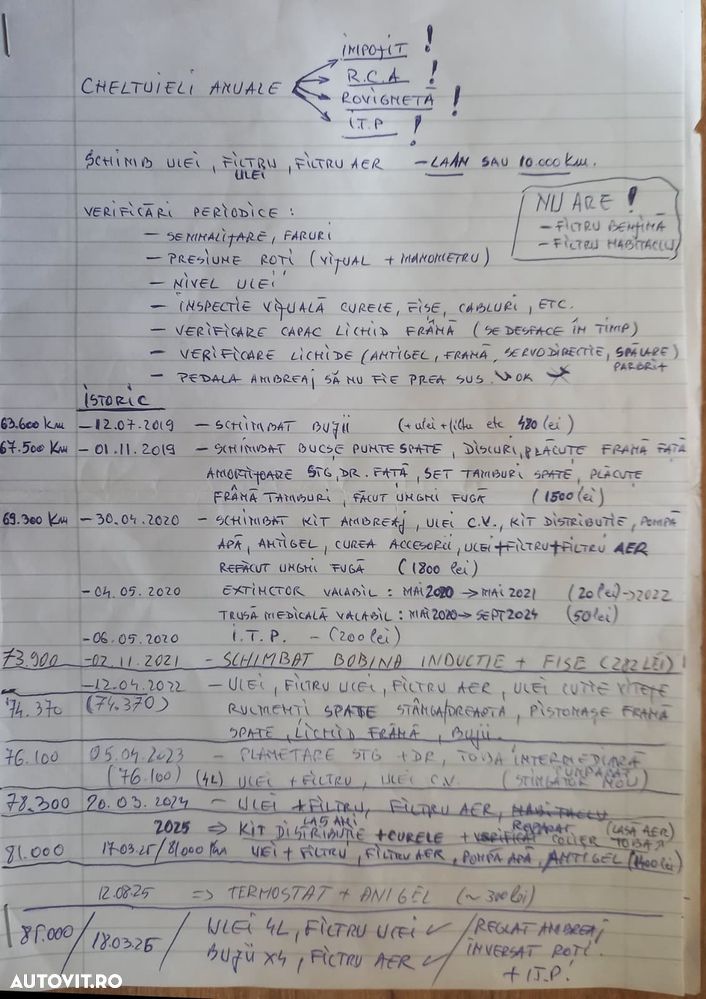 IMPOZIT !
CHELTUIELI ANUALE R.C.A !
ROVIGNETĂ !
I.T.P !
SCHIMB ULEI, FILTRU ULEI, FILTRU AER - LA AN SAU 10.000 KM.
NU ARE !
- FILTRU BENZINĂ
- FILTRU HABITACLU
VERIFICĂRI PERIODICE :
- SEMNALIZARE, FARURI
- PRESIUNE ROTI (VIZUAL + MANOMETRU)
- NIVEL ULEI
- INSPECTIE VIZUALĂ CURELE, FISE, CABLURI, ETC.
- VERIFICARE CAPAC LICHID FRÂNĂ (SE DESFACE ÎN TIMP)
- VERIFICARE LICHIDE (ANTIGEL, FRANĂ, SERVODIRECTIE, SPĂLARE)
PARBRIZ
- PEDALA AMBREAJ SĂ NU FIE PREA SUS. OK
ISTORIC
63.600 KM - 12.07.2019 - SCHIMBAT BUJII (+ ulei + filtru etc 480 lei)
67.500 KM - 01.11.2019 - SCHIMBAT BUCSE PUNTE SPATE, DISCURI, PLĂCUTE FRANĂ FATĂ
AMORTIZOARE STG, DR. FATĂ, SET TAMBURI SPATE, PLĂCUTE
FRÂNĂ TAMBURI, FĂCUT UNGHI FUGĂ (1500 lei)
69.300 KM - 30.04.2020 - SCHIMBAT KIT AMBREAJ, ULEI C.V., KIT DISTRIBUTIE, POMPĂ
APĂ, ANTIGEL, CUREA ACCESORII, ULEI+FILTRU+FILTRU AER
REFĂCUT UNGHI FUGĂ (1800 lei)
- 04.05.2020 EXTINCTOR VALABIL : MAI 2020 → MAI 2021 (20 lei) → 2022
TRUSĂ MEDICALĂ VALABIL : MAI 2020 → SEPT 2024 (50 lei)
- 06.05.2020 I.T.P. - (200 lei)
73.900 - 02.11.2021 - SCHIMBAT BOBINA INDUCTIE + FISE (282 LEI)
- 12.04.2022 - ULEI, FILTRU ULEI, FILTRU AER, ULEI CUTIE VITEZE
74.370 (74.370) RULMENTI SPATE STÂNGA/DREAPTA, PISTONASE FRANĂ
SPATE, LICHID FRÂNĂ, BUJII.
76.100 05.04.2023 - PLANETARE STG + DR, TOBĂ INTERMEDIARĂ
CUMPARAT
(76.100) (4L) ULEI + FILTRU, ULEI C.V. (STINGĂTOR NOU)
78.300 20.03.2024 - ULEI + FILTRU, FILTRU AER, HABITACLU
LA 5 ANI REPARAT (LASĂ AER)
2025 ⇒ KIT DISTRIBUTIE + CURELE + VERIFICAT COLIER TOBĂ
81.000 17.03.25 / 81000 KM ULEI + FILTRU, FILTRU AER, POMPĂ APĂ, ANTIGEL
12.08.25 ⇒ TERMOSTAT + ANIGEL (~ 300 lei)
18.03.26 / ULEI 4L, FILTRU ULEI ✓ / REGLAT AMBREAJ
BUJII X4, FILTRU AER ✓ INVERSAT ROTI.
+ I.T.P!
AUTOVIT.RO